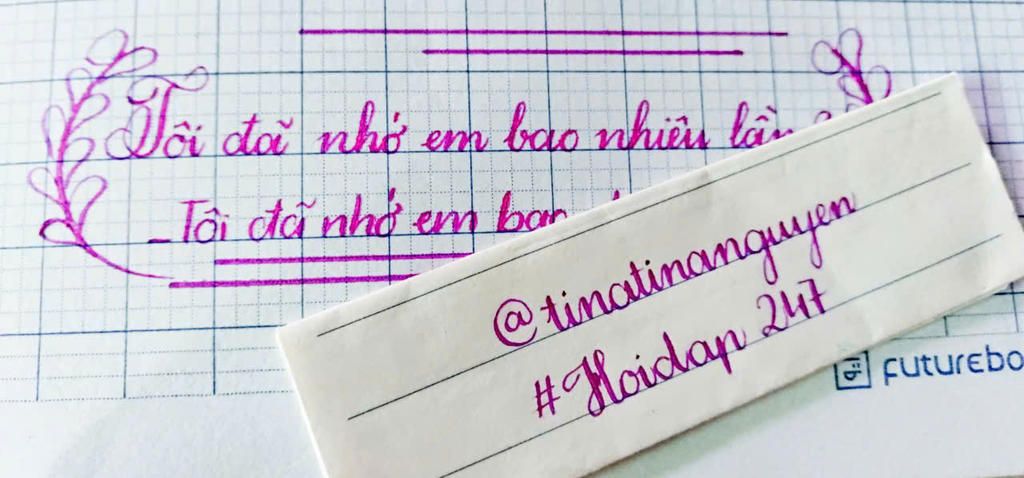 Tôi đã nhớ em bao nhiêu lần
_Tôi đã nhớ em bao
@tinatinanguyen
#Hoidap 247
FUTUREBO